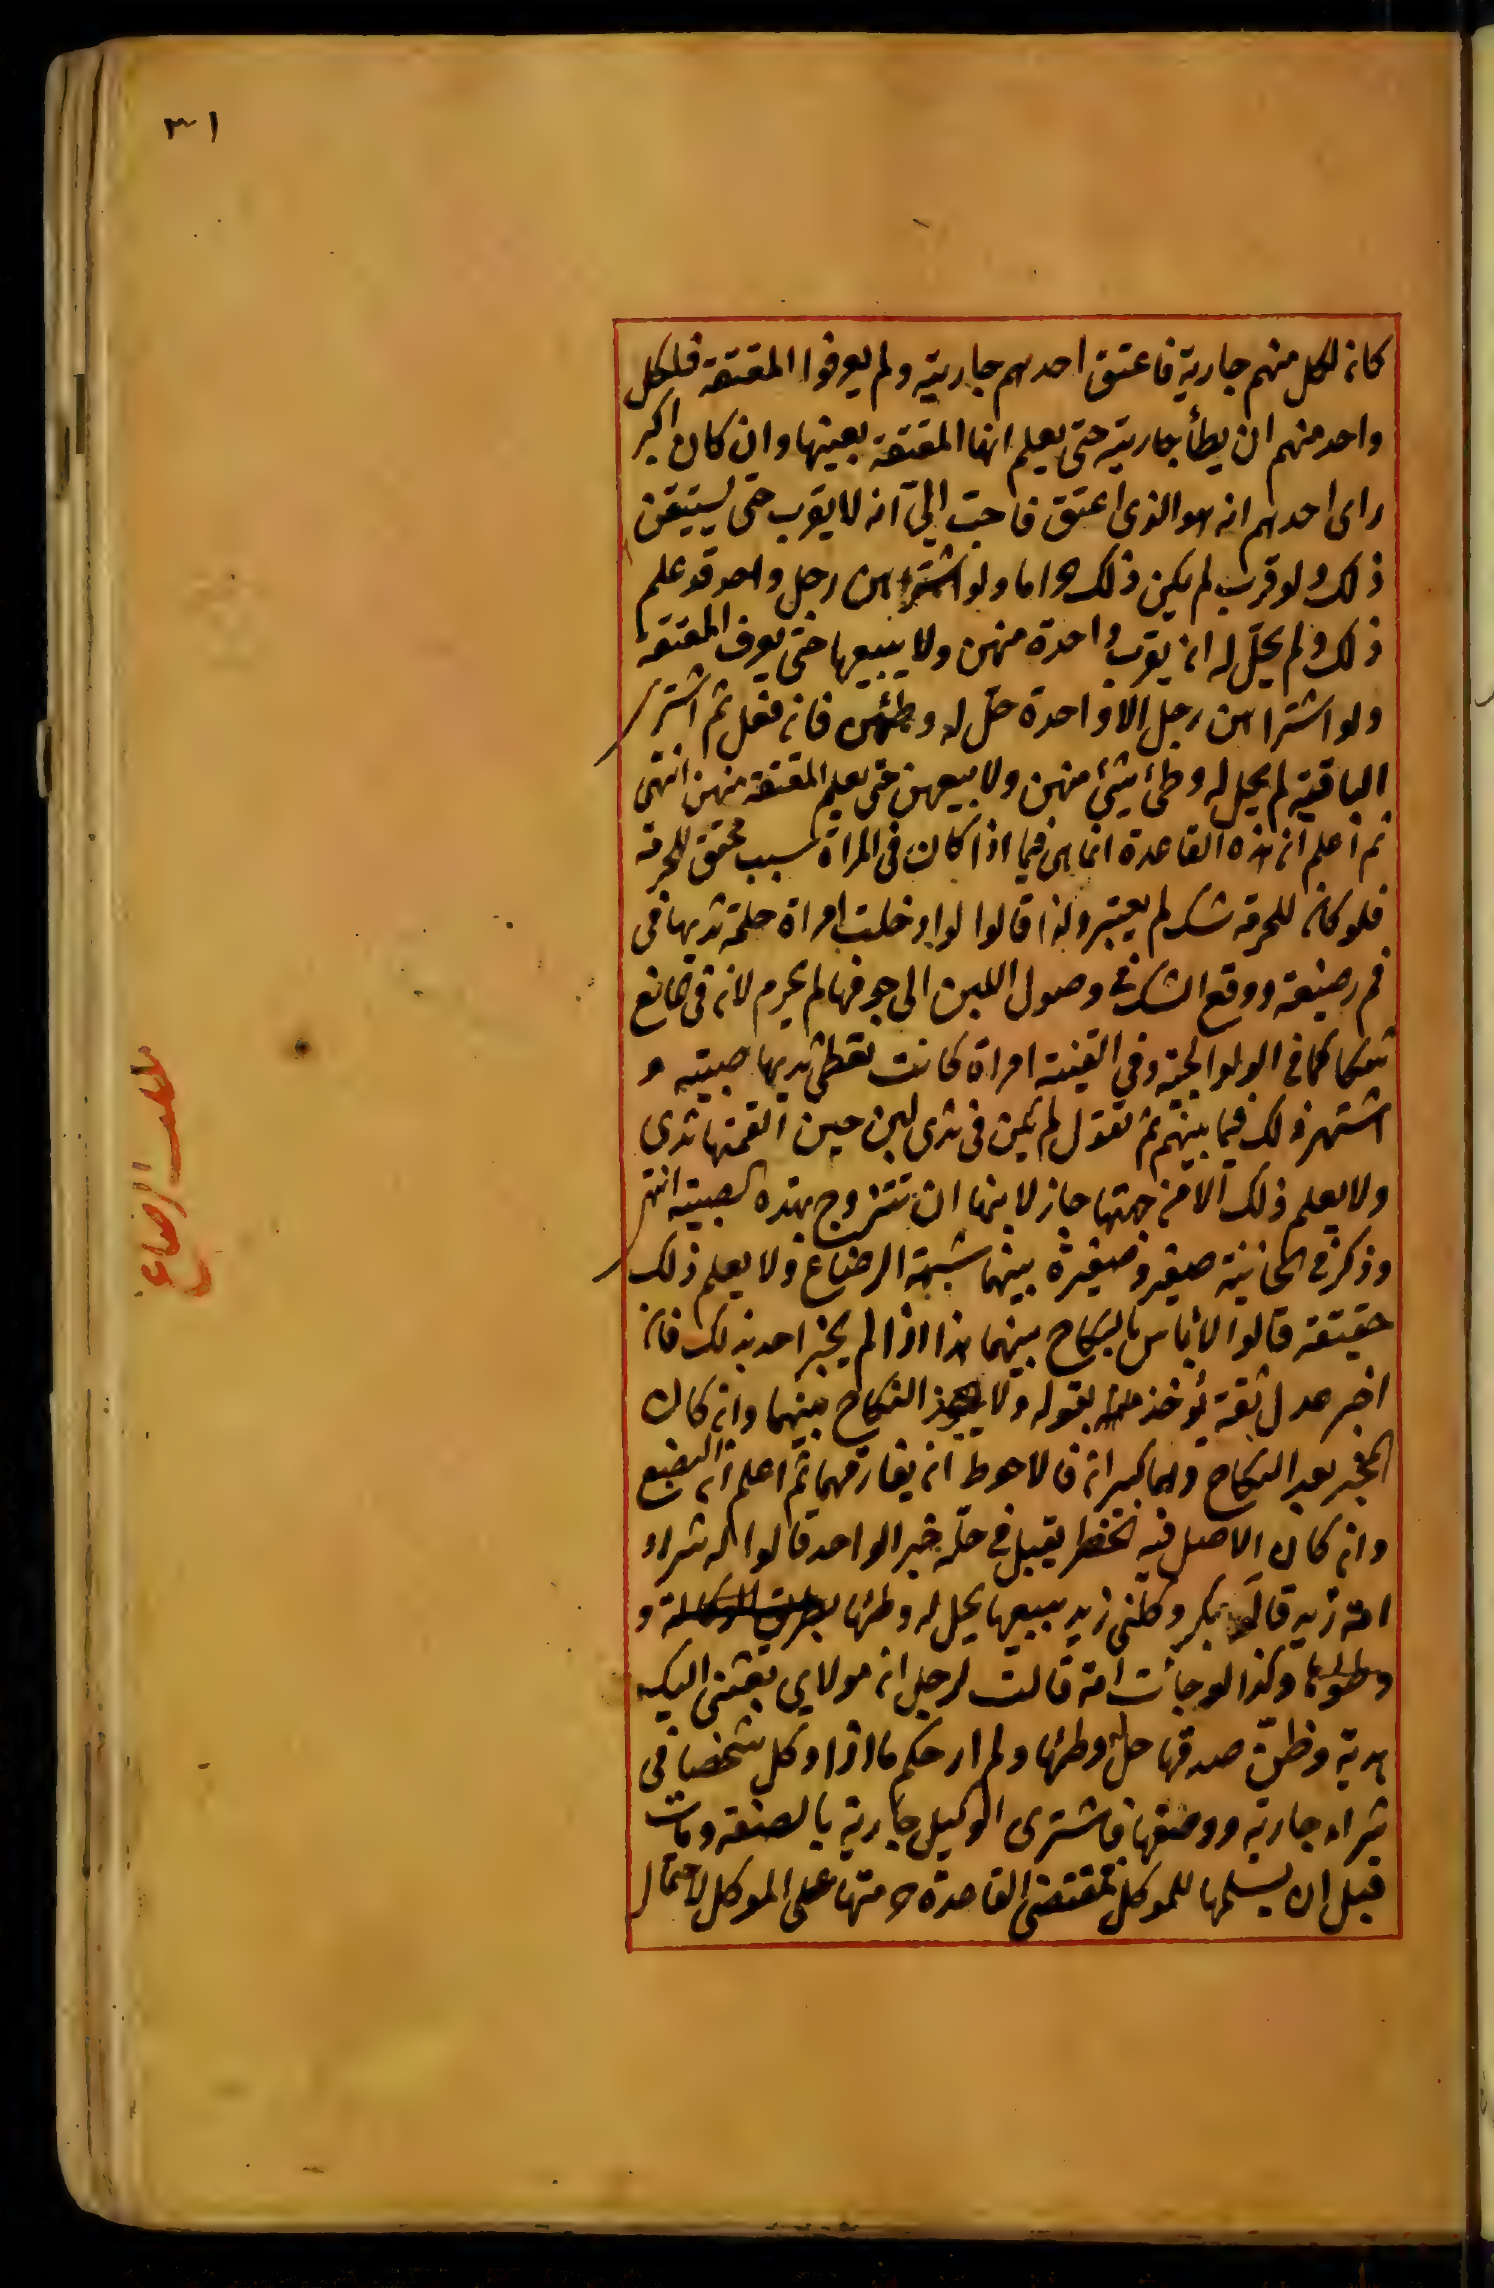 ٣١
كان لكل منهم جارية فاعتق احدهم جاريته ولم يعرفوا المعتقة فلكل
واحد منهم ان يطأ جاريته حتى يعلم انها المعتقة بعينها وان كان اكبر
راى احدهم انه هو الذى اعتق فاحب الىّ انه لا يقرب حتى يستيقن
ذلك ولو قرب لم يكن ذلك حراما ولو اشتراهن رجل واحد قد علم
ذلك ولم يحلّ له ان يقرب واحدة منهن ولا يبيعها حتى يعرف المعتقة
ولو اشتراهن رجل الا واحدة حلّ له وطئهن فان فعل ثم اشترى
الباقية لم يحل له وطئ شيئ منهن ولا بيعهن حتى يعلم المعتقة منهن انتهى
ثم اعلم ان هذه القاعدة انما هى فيما اذا كان فى المراة سبب محقق للحرمة
فلو كان للحرمة شك لم يعتبر ولذا قالوا لو ادخلت امراة حلمة ثديها فى
فم رضيعة ووقع الشك فى وصول اللبن الى جوفها لم يحرم لان فى المانع
شكا كما فى الولوالجية وفى القنية امراة كانت تعطى ثديها صبية و
اشتهر ذلك فيما بينهم ثم تقول لم يكن فى ثدى لبن حين القمتها ثدى
ولا يعلم ذلك الا من جهتها جاز لابنها ان تتزوج بهذه الصبية انتهى
وذكر فى الخانية صغير وصغيرة بينهما شبهة الرضاع ولا يعلم ذلك
حقيقة قالوا لا باس بالنكاح بينهما هذا اذا لم يخبر احد بذلك فان
اخبر عدل ثقة يؤخذ بقوله ولا يجوز النكاح بينهما وان كان
الخبر بعد النكاح وهما كبيران فالاحوط ان يفارقهما ثم اعلم ان البضع
وان كان الاصل فيه الحظر يقبل فى حله خبر الواحد قالوا له شراء
امة زيد قال بكر وكلنى زيد ببيعها يحل له وطئها و
وطؤها وكذا لو جائت امة قالت لرجل ان مولاى بعثنى اليك
هدية وظنّ صدقها حل وطئها ولم ار حكم ما اذا وكل شخصا فى
شراء جارية ووصفها فاشترى الوكيل جارية بالصفة ومات
قبل ان يسلمها للموكل فمقتضى القاعدة حرمتها على الموكل لاحتمال
مطلب الرضاع